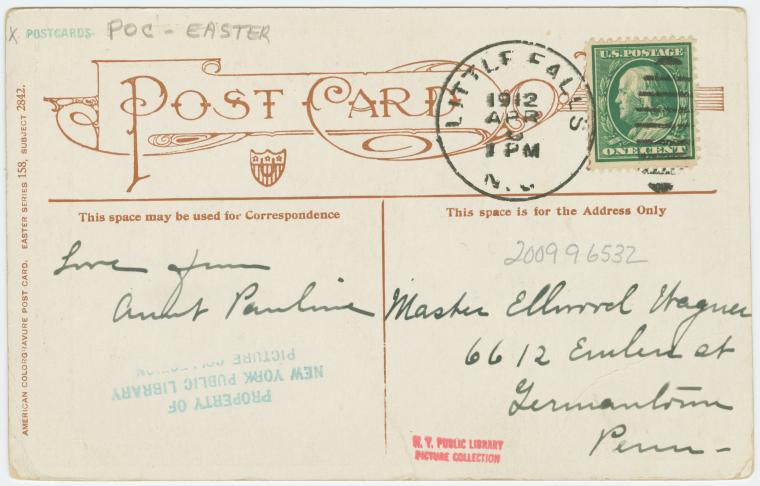 X POSTCARDS- POC - EASTER
POST CARD
LITTLE FALLS
1912
APR
1 PM
N.
U.S. POSTAGE
ONE CENT
AMERICAN COLORGRAVURE POST CARD. EASTER SERIES 158, SUBJECT 2842.
This space may be used for Correspondence
This space is for the Address Only
200996532
Love from
Aunt Pauline
Master Ellwood Wagner
6612 Emlen st
Germantown
Penn-
PROPERTY OF
NEW YORK PUBLIC LIBRARY
PICTURE COLLECTION
N. Y. PUBLIC LIBRARY
PICTURE COLLECTION